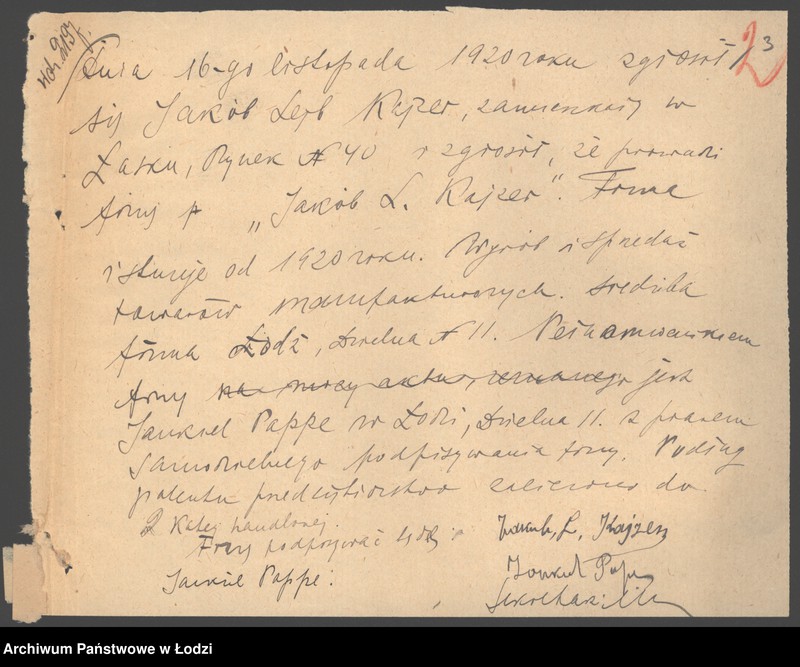 3
2
Dnia 16-go listopada 1920 roku zgłosił
się Jakób Lejb Kajzer, zamieszkały w
Łasku, Rynek N 40 i zgłosił, że prowadzi
firmę p. "Jakób L. Kajzer". Firma
istnieje od 1920 roku. Wyrób i sprzedaż
towarów manufakturowych. Siedziba
firma Łódź, Dzielna N 11. Pełnomocnikiem
firmy na mocy aktu jest
Jankiel Pappe w Łodzi, Dzielna 11. z prawem
samodzielnego podpisywania firmy. Podług
patentu przedsiębiorstwo zaliczono do
2 Kateg handlowej.
Firmę podpisywać będą:
Jankiel Pappe:
Jakub, L, Kajzer
Jankiel Pape
Sekretarz:
Archiwum Państwowe w Łodzi